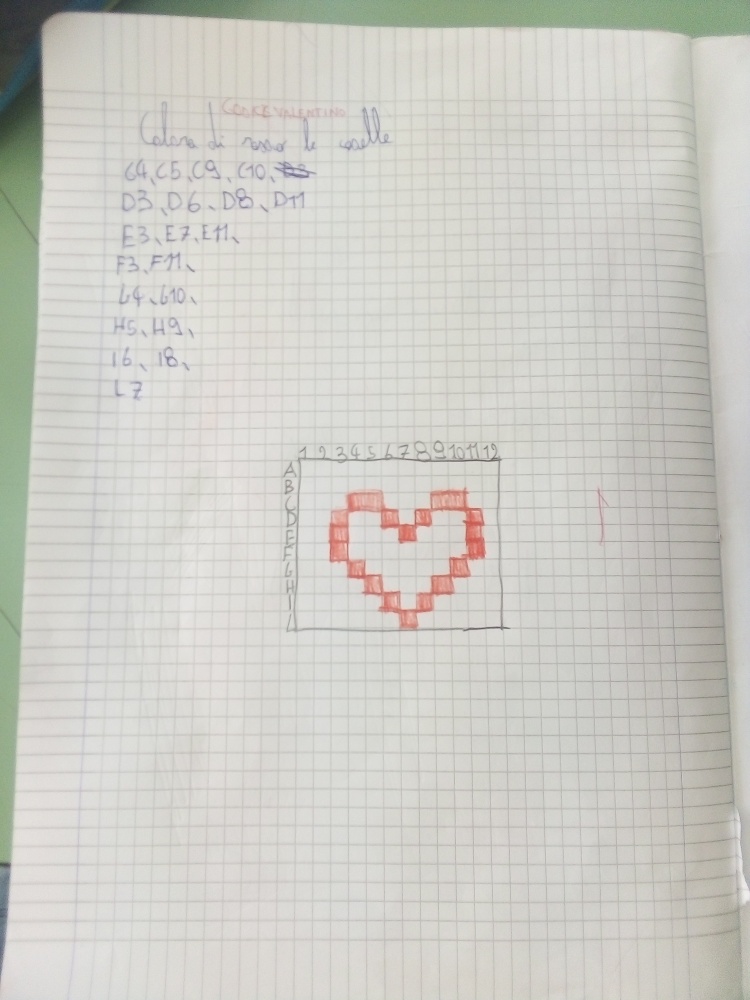 CUORE VALENTINO
Colora di rosso le caselle
C4, C5, C9, C10,
D3, D6, D8, D11
E3, E7, E11,
F3, F11,
G4, G10,
H5, H9,
I6, I8,
L7
1 2 3 4 5 6 7 8 9 10 11 12
A
B
C
D
E
F
G
H
I
L